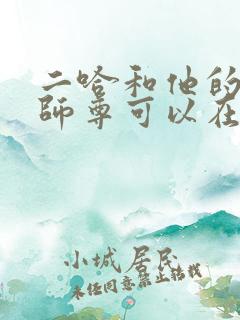 二哈和他的
師尊可以在
小城居民
未经同意禁止转载